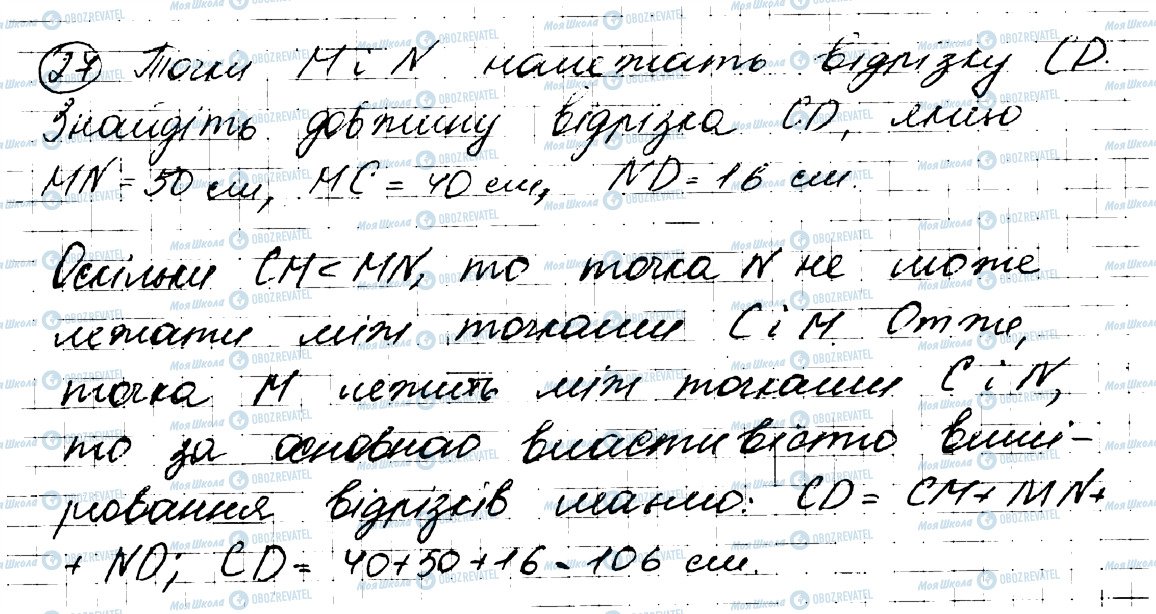 27 Точки M і N належать відрізку CD.
Знайдіть довжину відрізка CD, якщо
MN = 50 см, MC = 40 см, ND = 16 см.
Оскільки CM < MN, то точка N не може
лежати між точками C і M. Отже,
точка M лежить між точками C і N,
то за основною властивістю вимі-
рювання відрізків маємо: CD = CM + MN +
+ ND; CD = 40 + 50 + 16 = 106 см.